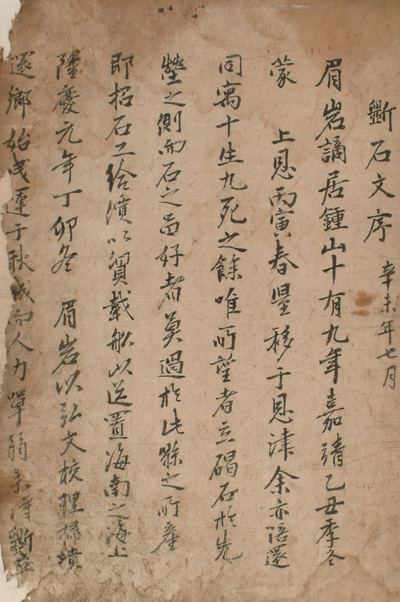 斲石文序 辛未年七月
眉岩謫居鍾山十有九年嘉靖乙丑季冬
蒙 上恩丙寅春量移于恩津余亦陪還
同寓十生九死之餘唯所望者立碣石於先
塋之側而石之品好者莫過於此縣之所産
即招石工給價以貿載船以送置海南之海上
隆慶元年丁卯冬 眉岩以弘文校理掃墳
還鄉始曳運于秋城而人力單弱未得斲立